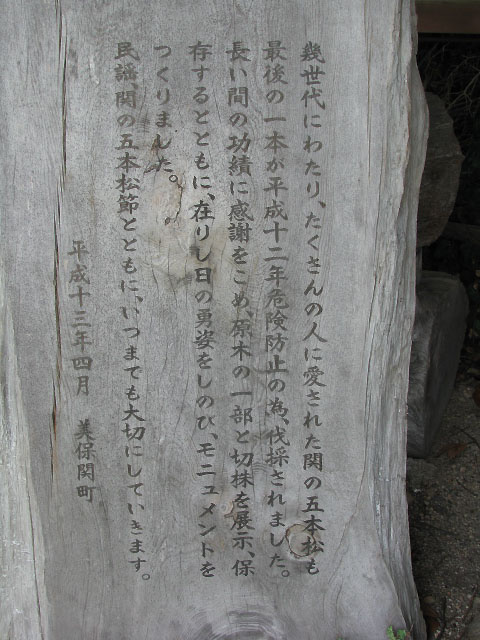 幾世代にわたり、たくさんの人に愛された関の五本松も
最後の一本が平成十二年危険防止の為、伐採されました。
長い間の功績に感謝をこめ、原木の一部と切株を展示、保
存するとともに、在りし日の勇姿をしのび、モニュメントを
つくりました。
民謡、関の五本松節とともに、いつまでも大切にしていきます。
平成十三年四月 美保関町